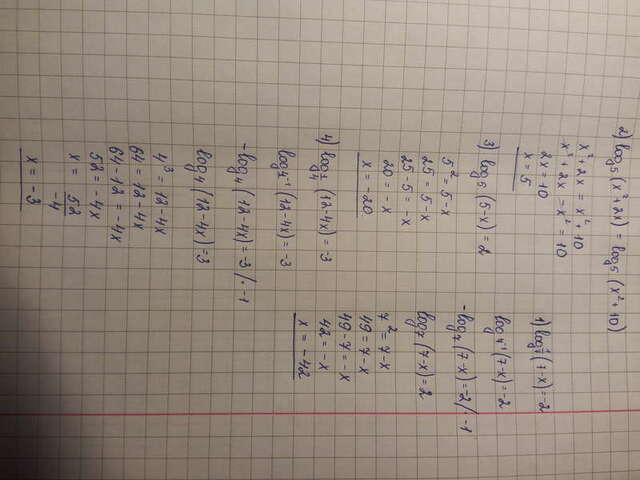 2) log₅ (x²+2x) = log₅ (x²+10)
x²+2x = x²+10
x²+2x -x² = 10
2x = 10
x = 5
3) log₅ (5-x) = 2
5² = 5-x
25 = 5-x
25-5 = -x
20 = -x
x = -20
4) log 1/4 (12-4x) = -3
log₄⁻¹ (12-4x) = -3
-log₄ (12-4x) = -3 /· -1
log₄ (12-4x) = 3
4³ = 12-4x
64 = 12-4x
64-12 = -4x
52 = -4x
x = 52/-4
x = -3
1) log 1/7 (7-x) = -2
log₇⁻¹ (7-x) = -2
-log₇ (7-x) = -2 /· -1
log₇ (7-x) = 2
7² = 7-x
49 = 7-x
49-7 = -x
42 = -x
x = -42